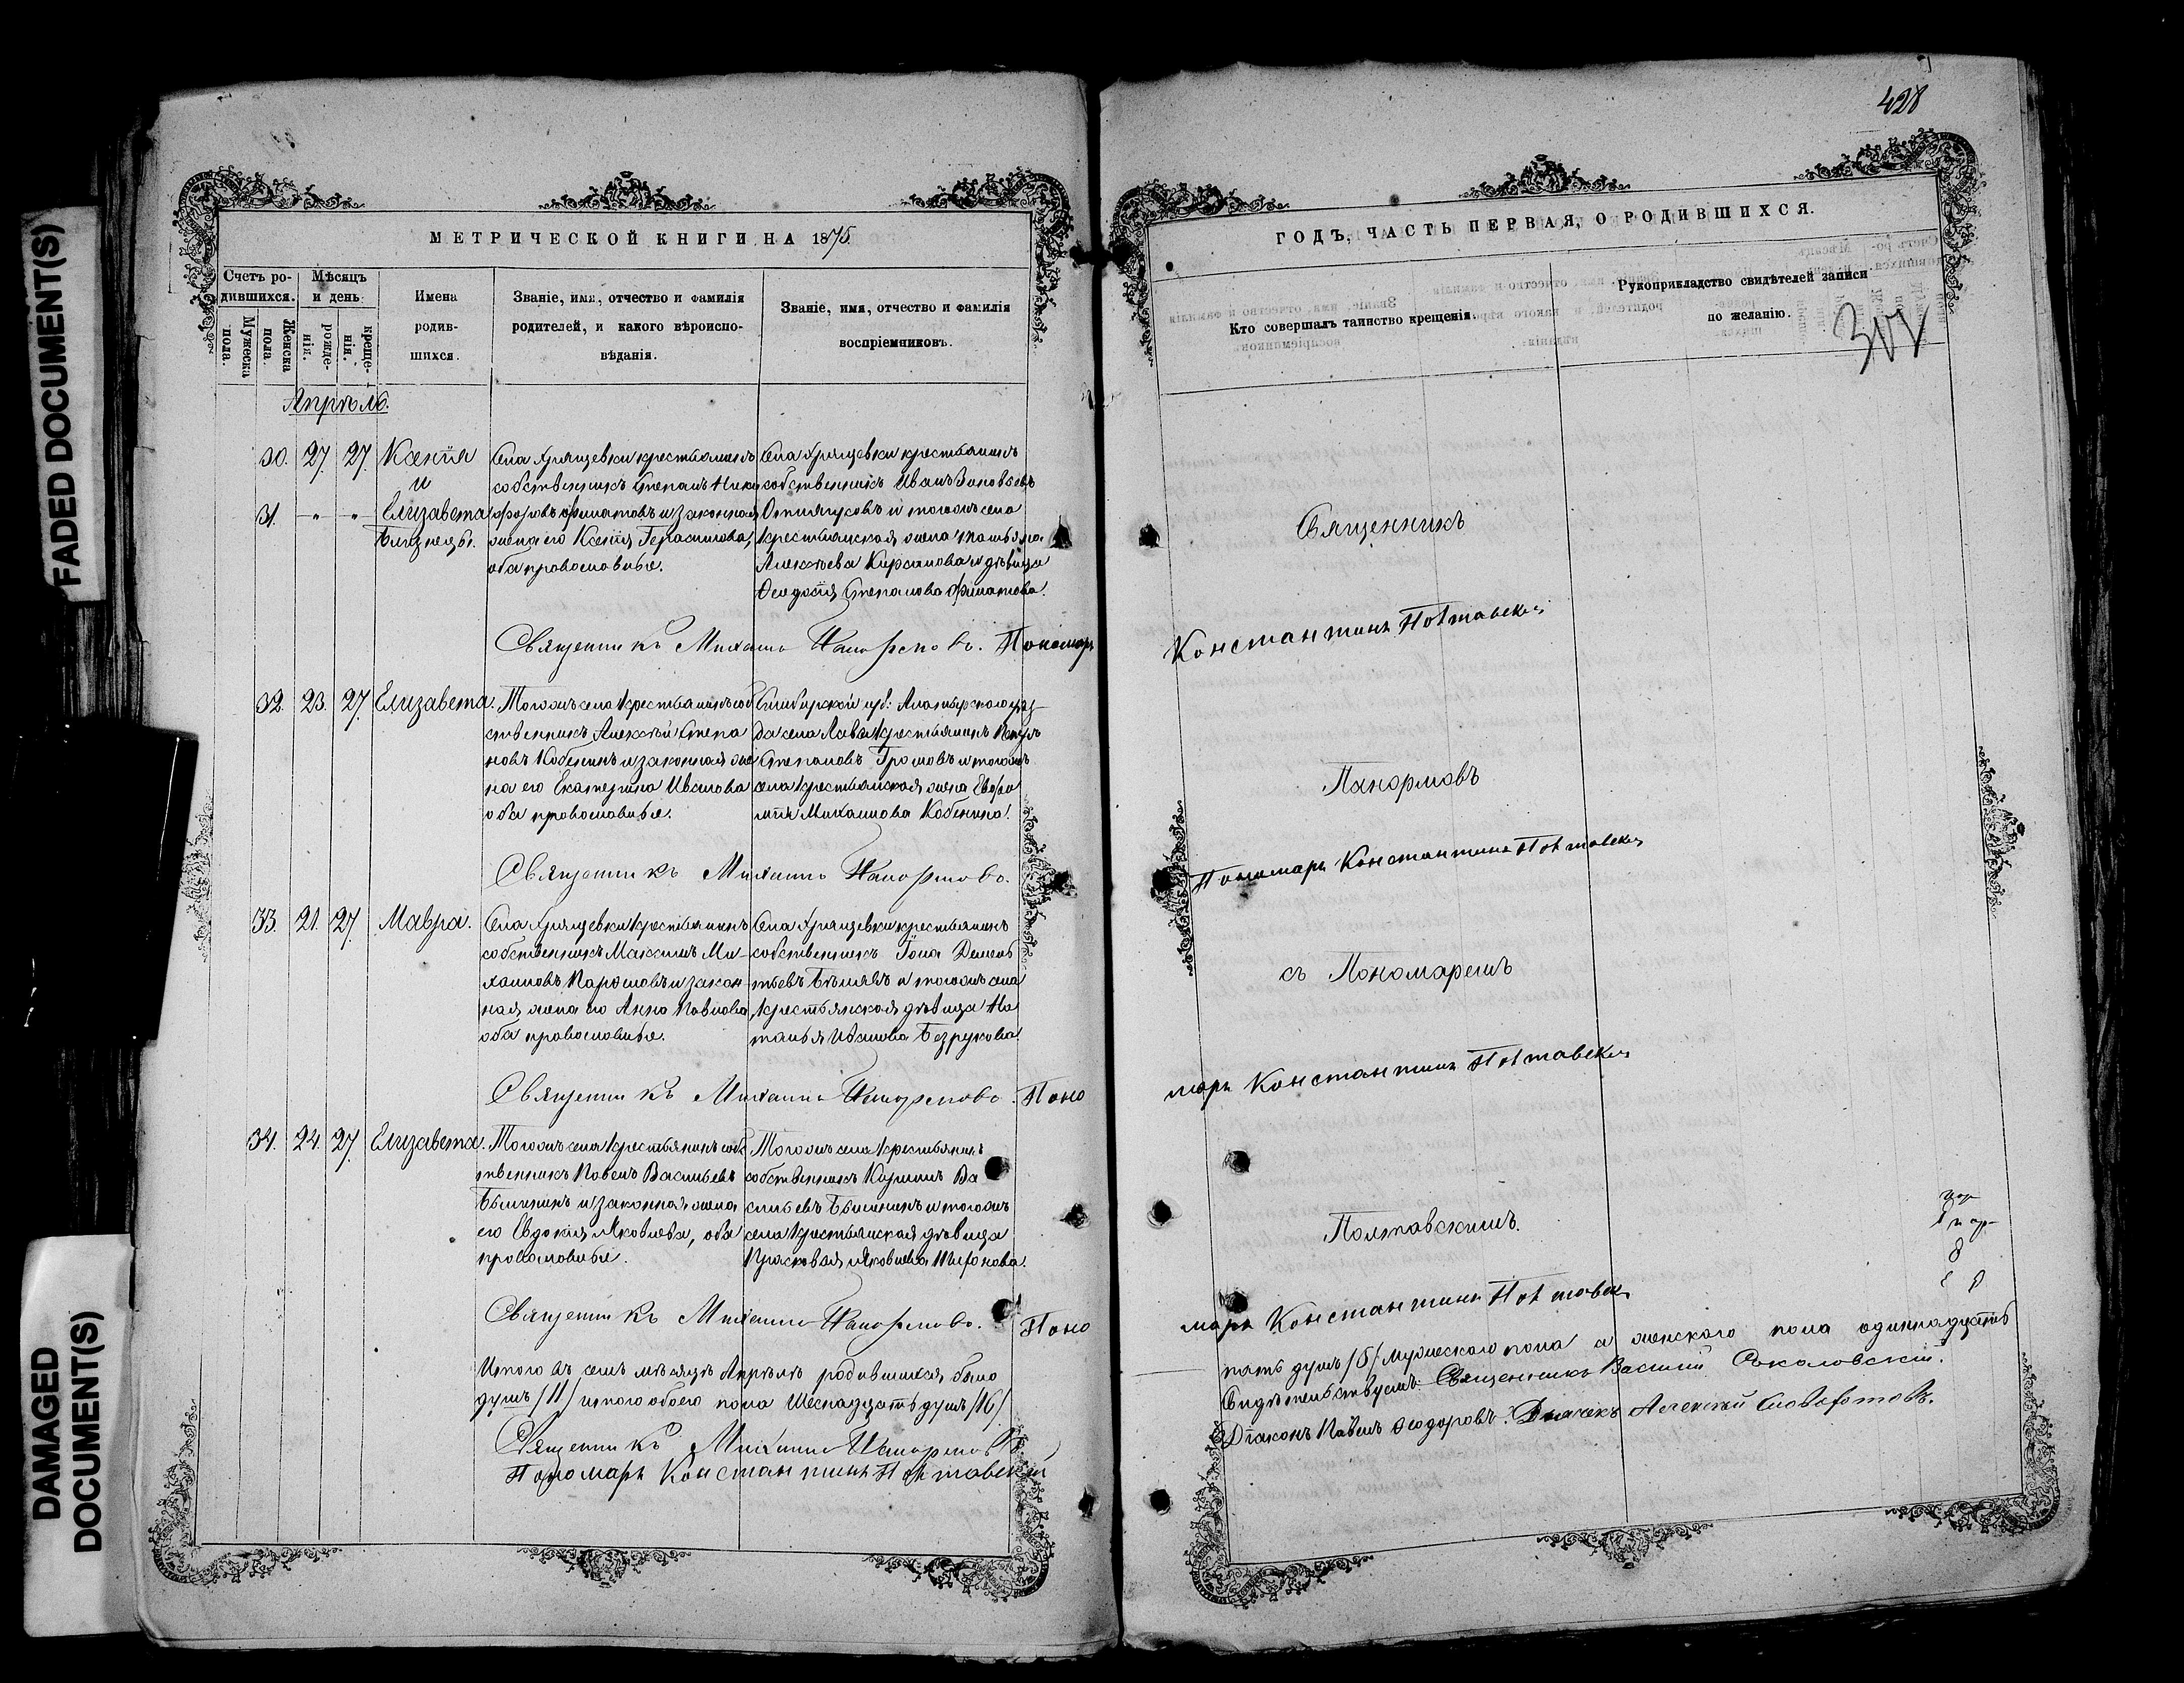 FADED DOCUMENT(S)
DAMAGED
DOCUMENT(S)
МЕТРИЧЕСКОЙ КНИГИ НА 1875
Счетъ ро-
дившихся.
Мужеска
пола.
Женска
пола.
Мѣсяцъ
и день
рожде-
нія.
креще-
нія.
Имена
родив-
шихся.
Званіе, имя, отчество и фамилія
родителей, и какого вѣроиспо-
вѣданія.
Званіе, имя, отчество и фамилія
воспріемниковъ.
Апрѣль.
30. 27. 27. Ксенія
и
31. - " - - " - Елизавета
Близнецы.
Села Хрящевки крестьянинъ
собственникъ Степанъ Ники
форовъ Филатовъ и законная
жена его Ксенія Герасимова,
оба православные.
Села Хрящевки крестьянинъ
собственникъ Иванъ Зиновьевъ
и тогожъ села
крестьянская жена Татьяна
Алексѣева Кирсанова и дѣвица
Феодосія Степанова Филатова.
Священникъ Михаилъ Панормовъ. Пономарь
32. 23. 27. Елизавета.
Тогожъ села крестьянинъ соб
ственникъ Алексѣй Степа
новъ Кобенинъ и законная же
на его Екатерина Иванова
оба православные.
Симбирской губ: Алатырскаго уѣз-
да села Лава крестьянинъ Петръ
Степановъ Громовъ и тогожъ
села крестьянская жена Евфи
мія Михаилова Кобенина.
Священникъ Михаилъ Панормовъ.
33. 21. 27. Мавра.
Села Хрящевки крестьянинъ
собственникъ Максимъ Ми-
хаиловъ и закон-
ная жена его Анна Павлова,
оба православные.
Села Хрящевки крестьянинъ
собственникъ Іона Демень
тьевъ и тогожъ села
крестьянская дѣвица На
талья Иванова Безрукова.
Священникъ Михаилъ Панормовъ. Поно
34. 24. 27. Елизавета.
Тогожъ села крестьянинъ собс
твенникъ Павелъ Васильевъ
Былинкинъ и законная жена
его Евдокія Яковлева, оба
православные.
Тогожъ села крестьянинъ
собственникъ Кириллъ Ва
сильевъ Былинкинъ и тогожъ
села крестьянская дѣвица
Прасковья Яковлева
Священникъ Михаилъ Панормовъ. Поно
Итого въ семъ мѣсяцѣ Апрѣлѣ родившихся было
душъ /11/ итого обоего пола Шеснадцать душъ /16/
Священникъ Михаилъ Панормовъ
Пономарь Константинъ Полтавскій
428
ГОДЪ, ЧАСТЬ ПЕРВАЯ, О РОДИВШИХСЯ.
Кто совершалъ таинство крещенія.
Рукоприкладство свидѣтелей записи
по желанію.
Священникъ
Константинъ Полтавскій
Панормовъ
Пономарь Константинъ Полтавскій
съ Пономаремъ
марь Константинъ Полтавскій
Полтавскимъ.
марь Константинъ Полтавскій
пять душъ /5/ мужескаго пола а женскаго пола одиннадцать
Свидѣтельствуемъ: Священникъ Василій Соколовскій.
Діаконъ Павелъ Феодоровъ. Дьячекъ Алексѣй